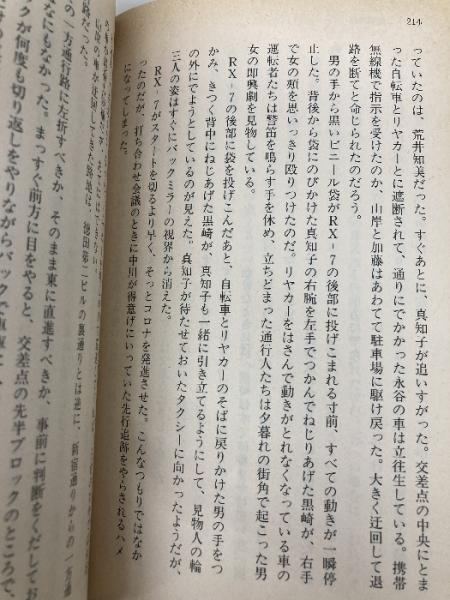 214
っていたのは、荒井知美だった。すぐあとに、真知子が追いすがった。交差点の中央にとま
った自転車とリヤカーとに遮断されて、通りにでかかった永谷の車は立往生している。携帯
無線機で指示を受けたのか、山岸と加藤はあわてて駐車場に駆け戻った。大きく迂回して退
路を断てと命じられたのだろう。
男の手から黒いビニール袋がRX-7の後部に投げこまれる寸前、すべての動きが一瞬停
止した。背後から袋にのびかけた真知子の右腕を左手でつかんでねじりあげた黒崎が、右手
で女の頬を思いっきり殴りつけたのだ。リヤカーをはさんで動きがとれなくなっている車の
運転者たちは警笛を鳴らす手を休め、立ちどまった通行人たちは夕暮れの街角で起こった男
女の即興劇を見物している。
RX-7の後部に袋を投げこんだあと、自転車とリヤカーのそばに戻りかけた男の手をつ
かみ、きつく背中にねじあげた黒崎が、真知子も一緒に引き立てるようにして、見物人の輪
の外にでようとしているのが見えた。真知子が待たせておいたタクシーに向かったようだが、
三人の姿はすぐにバックミラーの視界から消えた。
RX-7がスタートを切るより早く、そっとコロナを発進させた。こんなつもりではなか
ったのだが、打ち合わせ会議のときに中川が得意げにいっていた先行追跡をやらされるハメ
になってしまった。
迂回してきた路地は、徳田第二ビルの裏通りとは逆に、新宿通りからの一方通
行路だった。
の一方通行路に左折すべきか、そのまま東に直進すべきか、事前に判断をくだしてお
なにもなかった。まっすぐ前方に目をやると、交差点の先半ブロックのところで、
ックが何度も切り返しをやりながらバックで車庫に